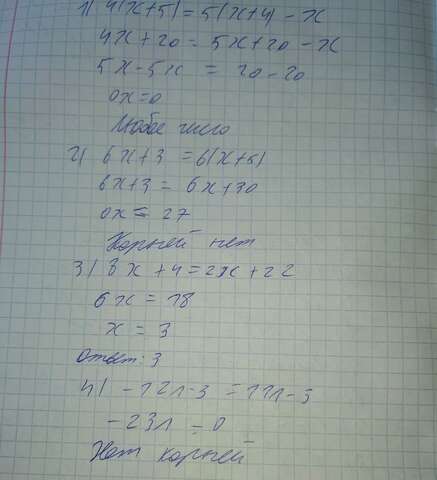 1) 4(x+5) = 5(x+4) - x
4x + 20 = 5x + 20 - x
5x - 5x = 20 - 20
0x = 0
Любое число
2) 6x + 3 = 6(x+5)
6x + 3 = 6x + 30
0x = 27
Корней нет
3) 8x + 4 = 2x + 22
6x = 18
x = 3
Ответ: 3
4) -12л-3 = 11л-3
-23л = 0
Нет корней